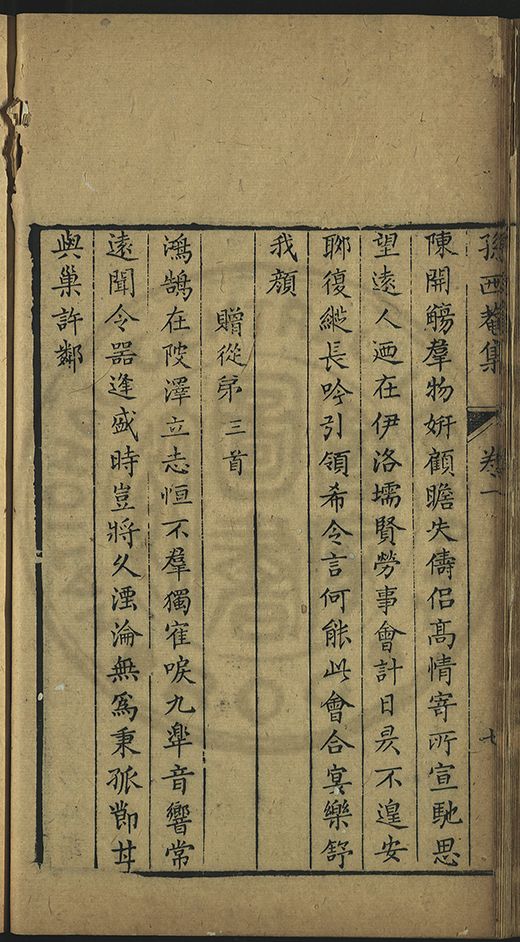 孫西菴集 卷一 七
陳開觴羣物妍顧瞻失儔侣髙情寄所宣馳思
望遠人迺在伊洛壖賢勞事會計日昃不遑安
聊復縱長吟引領希令言何能此會合寞樂舒
我顔
贈從弟三首
鴻鵠在陂澤立志恒不羣獨寉唳九臯音響常
遠聞令器逢盛時豈將久湮淪無爲秉孤節甘
與巢許鄰